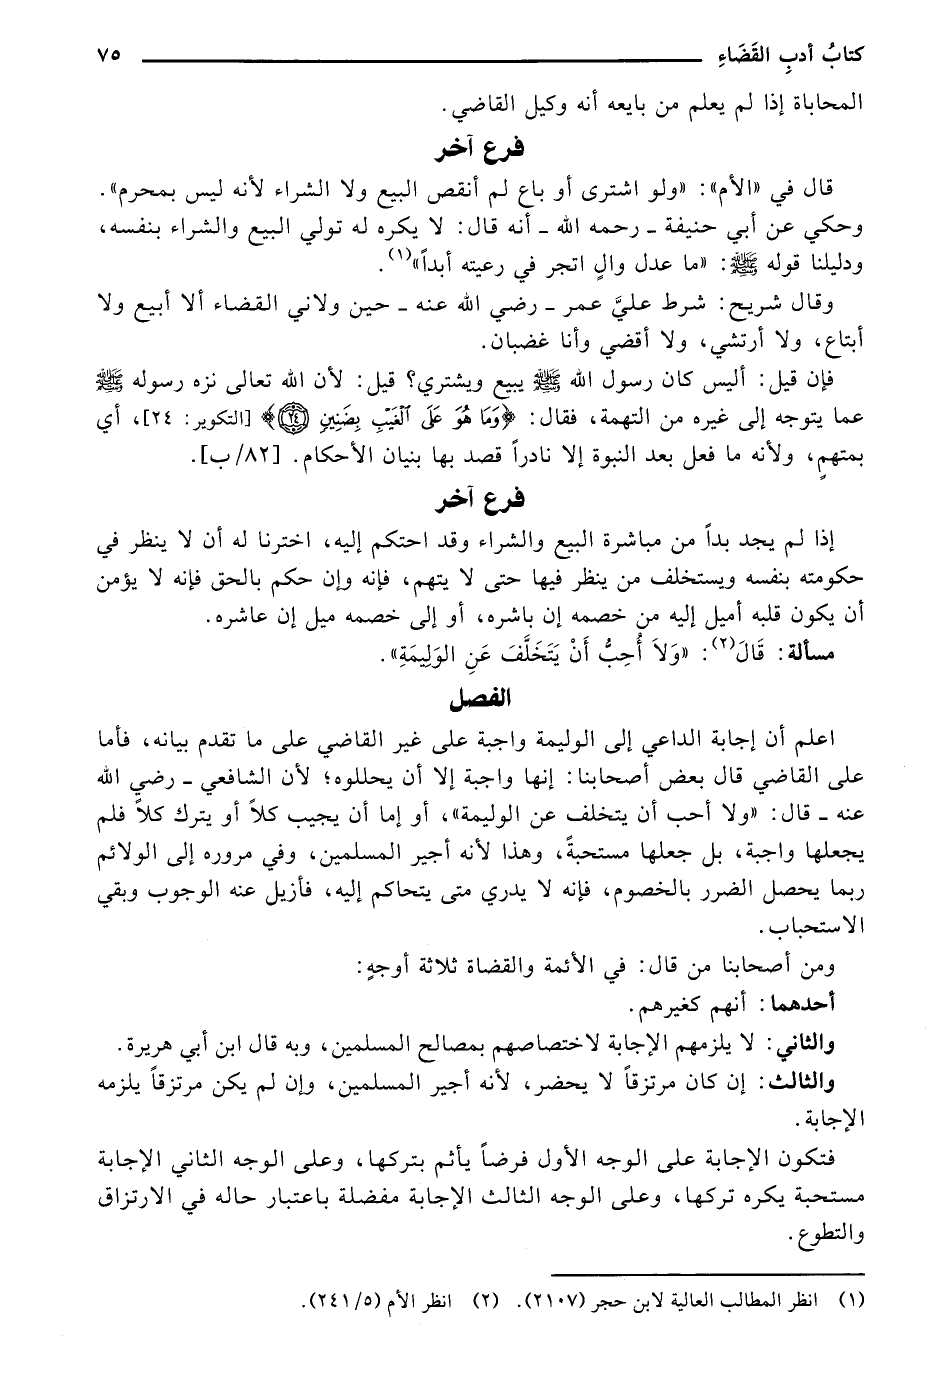 كتابُ أدبِ القَضَاءِ ٧٥
المحاباة إذا لم يعلم من بايعه أنه وكيل القاضي.
فرع آخر
قال في «الأم»: «ولو اشترى أو باع لم أنقص البيع ولا الشراء لأنه ليس بمحرم».
وحكي عن أبي حنيفة ـ رحمه الله ـ أنه قال: لا يكره له تولي البيع والشراء بنفسه،
ودليلنا قوله ﷺ: «ما عدل والٍ اتجر في رعيته أبداً»(١).
وقال شريح: شرط عليَّ عمر ـ رضي الله عنه ـ حين ولاني القضاء ألا أبيع ولا
أبتاع، ولا أرتشي، ولا أقضي وأنا غضبان.
فإن قيل: أليس كان رسول الله ﷺ يبيع ويشتري؟ قيل: لأن الله تعالى نزه رسوله ﷺ
عما يتوجه إلى غيره من التهمة، فقال: ﴿وَمَا هُوَ عَلَى ٱلْغَيْبِ بِضَنِينٍ ۝٢٤﴾ [التكوير: ٢٤]، أي
بمتهمٍ، ولأنه ما فعل بعد النبوة إلا نادراً قصد بها بنيان الأحكام. [٨٢/ ب].
فرع آخر
إذا لم يجد بداً من مباشرة البيع والشراء وقد احتكم إليه، اخترنا له أن لا ينظر في
حكومته بنفسه ويستخلف من ينظر فيها حتى لا يتهم، فإنه وإن حكم بالحق فإنه لا يؤمن
أن يكون قلبه أميل إليه من خصمه إن باشره، أو إلى خصمه ميل إن عاشره.
مسألة: قَالَ(٢): «وَلاَ أُحِبُّ أَنْ يَتَخَلَّفَ عَنِ الوَلِيمَةِ».
الفصل
اعلم أن إجابة الداعي إلى الوليمة واجبة على غير القاضي على ما تقدم بيانه، فأما
على القاضي قال بعض أصحابنا: إنها واجبة إلا أن يحللوه؛ لأن الشافعي ـ رضي الله
عنه ـ قال: «ولا أحب أن يتخلف عن الوليمة»، أو إما أن يجيب كلاً أو يترك كلاً فلم
يجعلها واجبة، بل جعلها مستحبةً، وهذا لأنه أجير المسلمين، وفي مروره إلى الولائم
ربما يحصل الضرر بالخصوم، فإنه لا يدري متى يتحاكم إليه، فأزيل عنه الوجوب وبقي
الاستحباب.
ومن أصحابنا من قال: في الأئمة والقضاة ثلاثة أوجهٍ:
أحدهما: أنهم كغيرهم.
والثاني: لا يلزمهم الإجابة لاختصاصهم بمصالح المسلمين، وبه قال ابن أبي هريرة.
والثالث: إن كان مرتزقاً لا يحضر، لأنه أجير المسلمين، وإن لم يكن مرتزقاً يلزمه
الإجابة.
فتكون الإجابة على الوجه الأول فرضاً يأثم بتركها، وعلى الوجه الثاني الإجابة
مستحبة يكره تركها، وعلى الوجه الثالث الإجابة مفضلة باعتبار حاله في الارتزاق
والتطوع.
(١) انظر المطالب العالية لابن حجر (٢١٠٧). (٢) انظر الأم (٢٤١/٥).